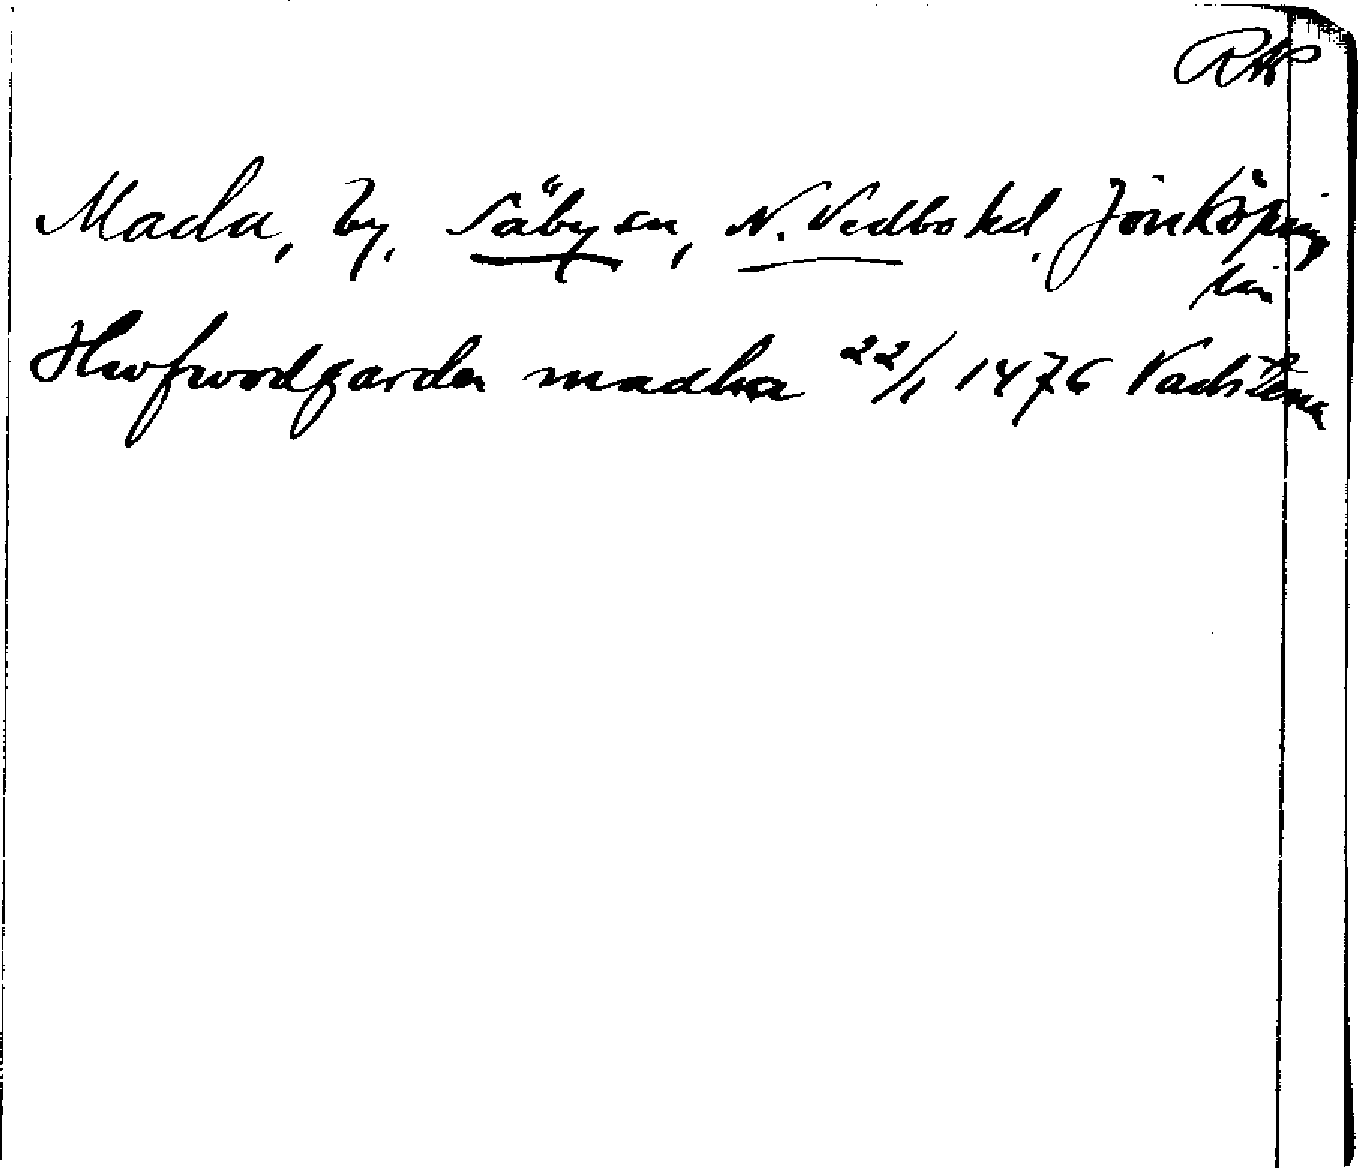 RAP
Mada, by, Säby sn, N. Vedbo hd, Jönköping
län
Hwfwordgarden madha 22/1 1476 Vadstena